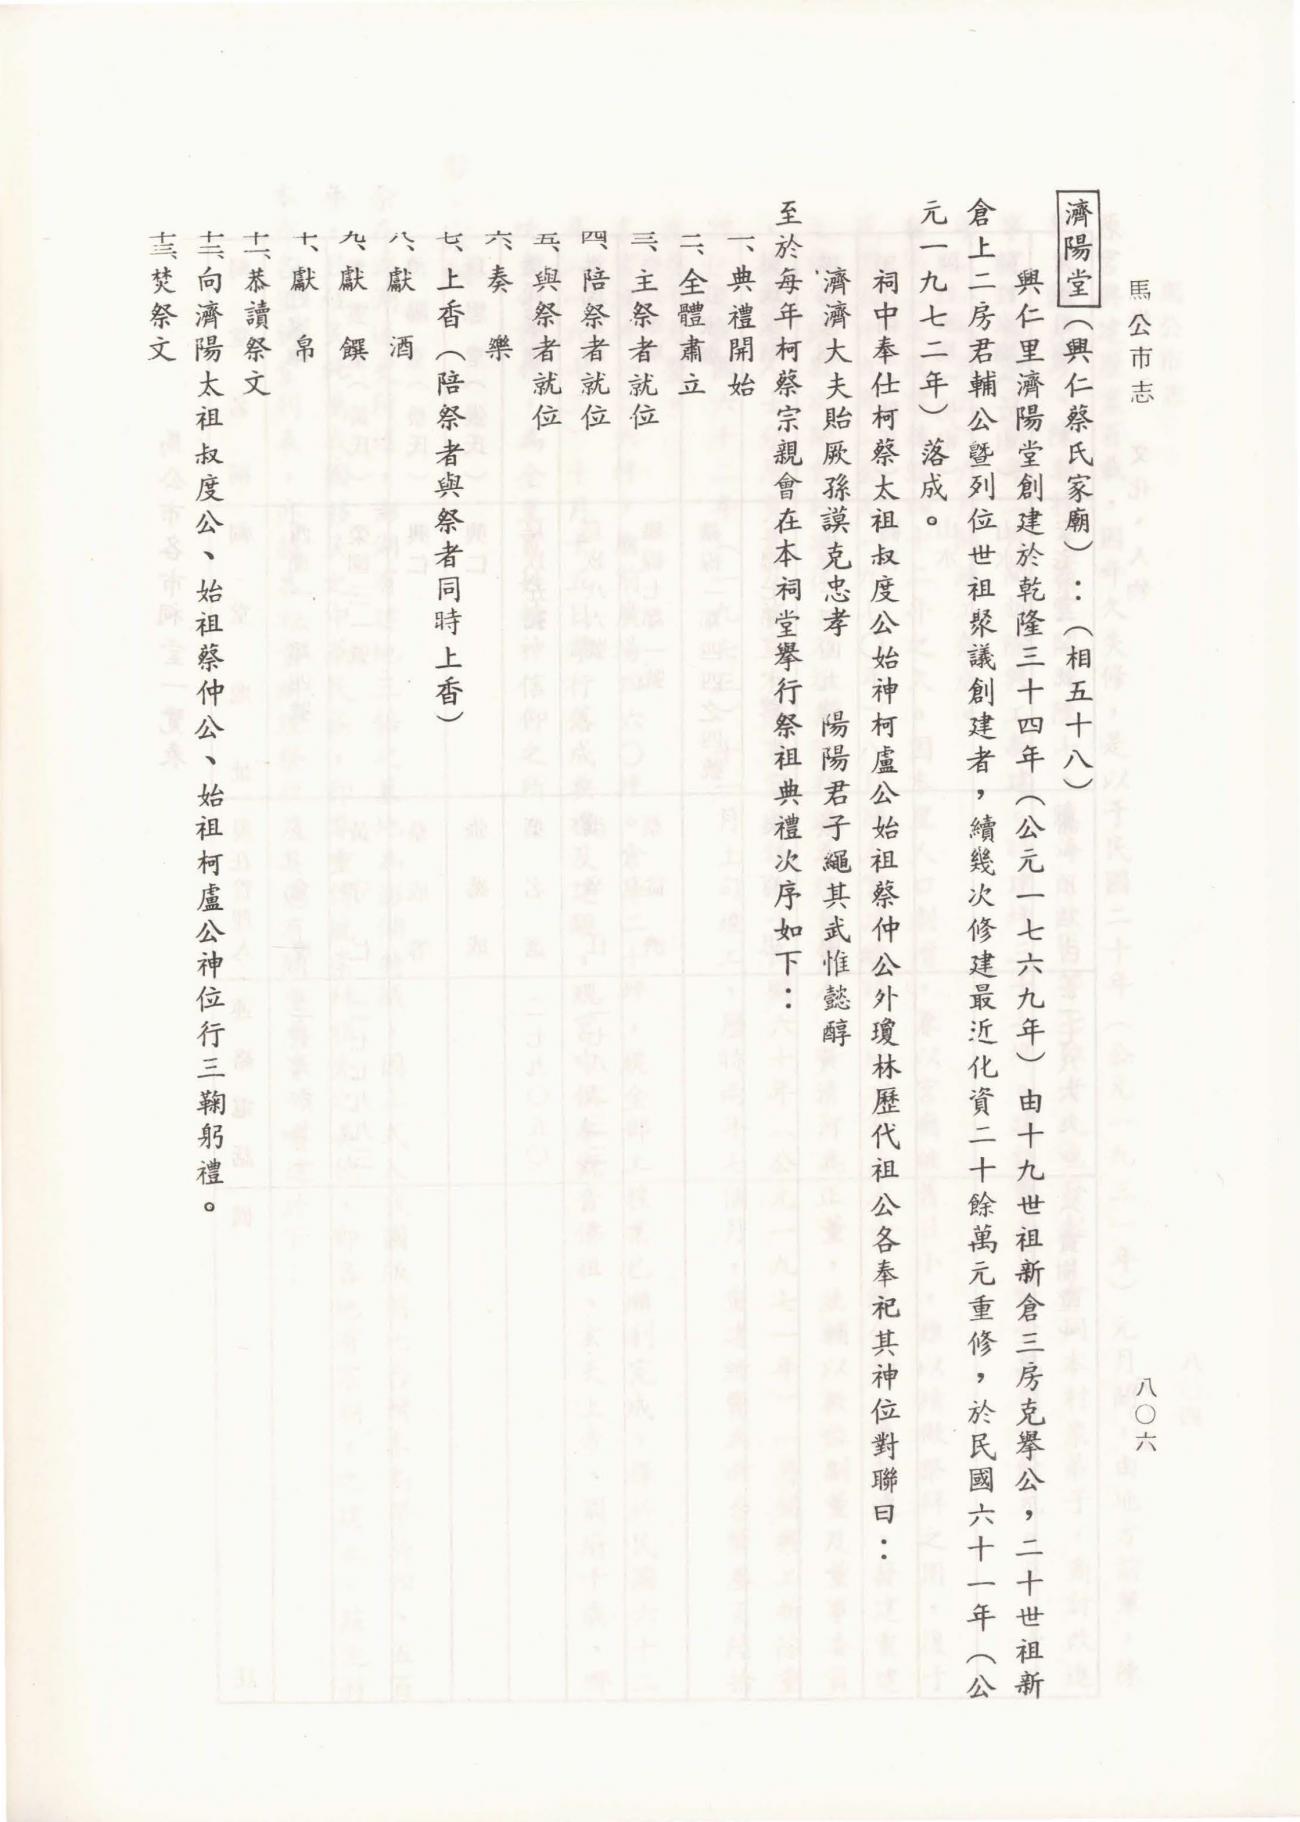 馬公市志
八〇六
濟陽堂（興仁蔡氏家廟）：（相五十八）
興仁里濟陽堂創建於乾隆三十四年（公元一七六九年）由十九世祖新倉三房克舉公，二十世祖新
倉上二房君輔公暨列位世祖聚議創建者，續幾次修建最近化資二十餘萬元重修，於民國六十一年（公
元一九七二年）落成。
祠中奉仕柯蔡太祖叔度公始神柯盧公始祖蔡仲公外瓊林歷代祖公各奉祀其神位對聯曰：
濟濟大夫貽厥孫謨克忠孝　陽陽君子繩其武惟懿醇
至於每年柯蔡宗親會在本祠堂舉行祭祖典禮次序如下：
一、典禮開始
二、全體肅立
三、主祭者就位
四、陪祭者就位
五、與祭者就位
六、奏　樂
七、上香（陪祭者與祭者同時上香）
八、獻　酒
九、獻　饌
十、獻　帛
十一、恭讀祭文
十二、向濟陽太祖叔度公、始祖蔡仲公、始祖柯盧公神位行三鞠躬禮。
十三、焚祭文